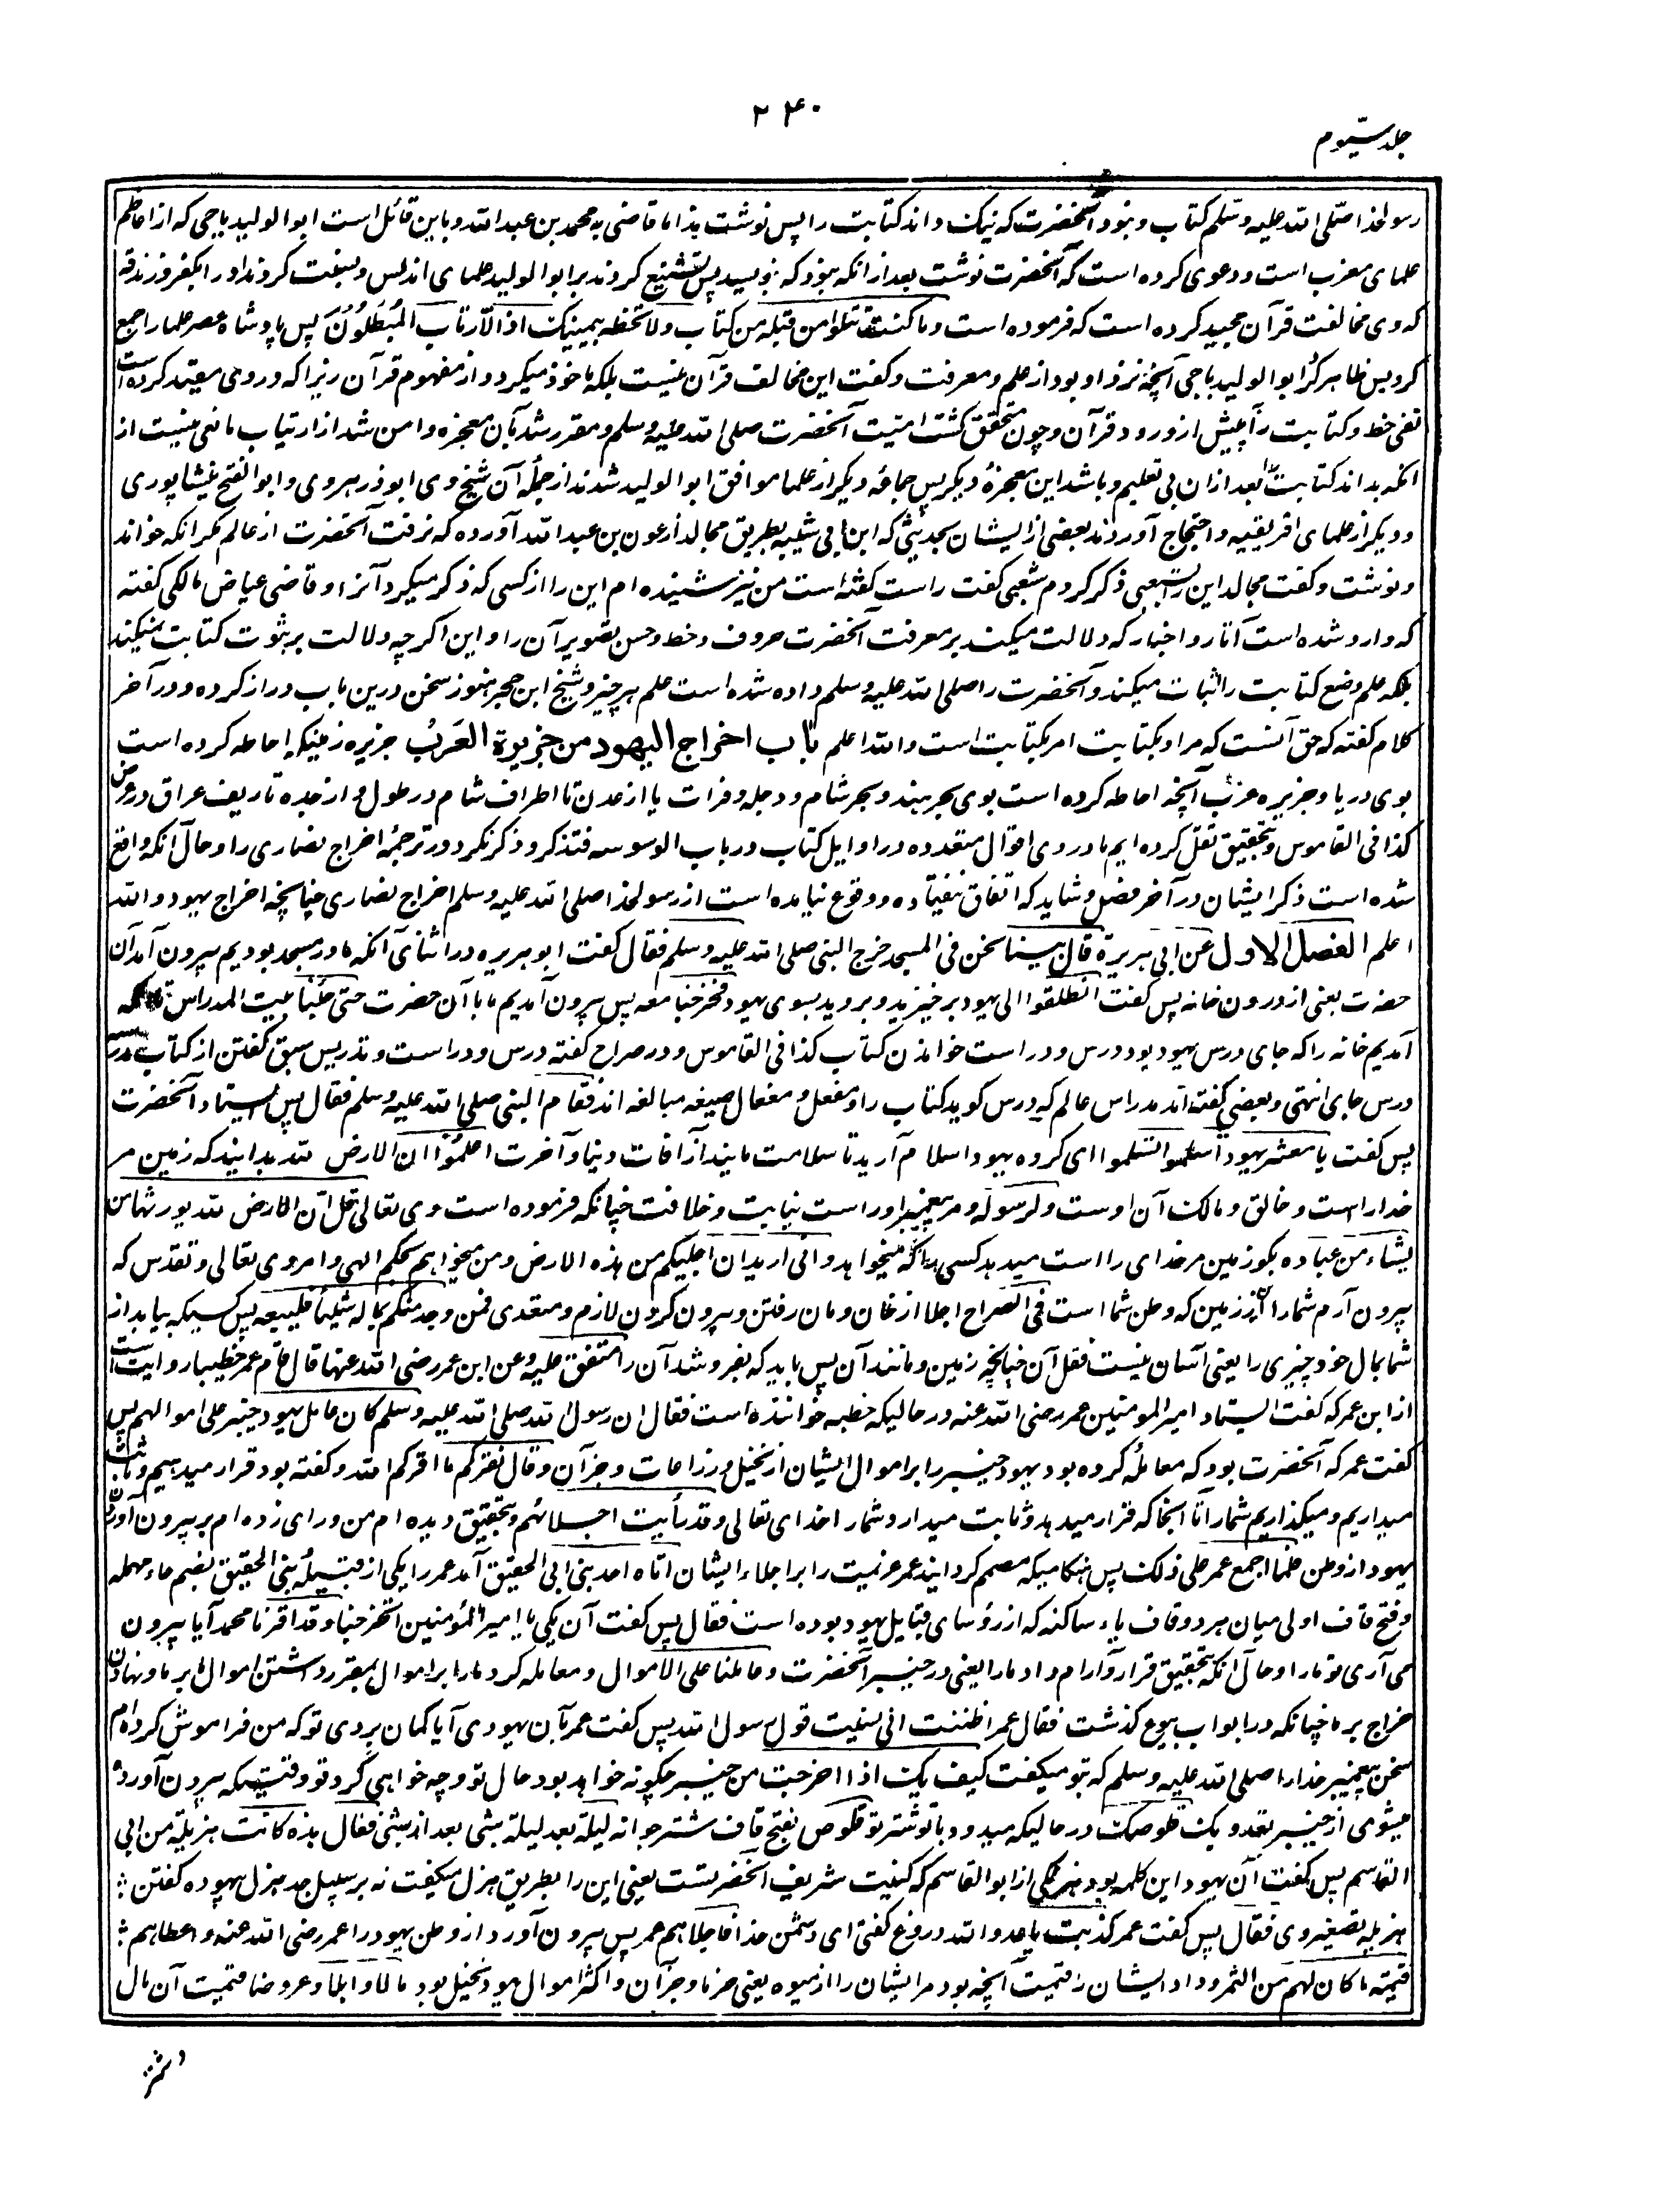 ۲۴۰
جلد سیوم
رسولخدا صلی الله علیه وسلم کتاب و نبود آنحضرت که نیک داند کتابت را پس نوشت هذا ما قاضی به محمد بن عبد الله و باین قائل است ابو الولید باجی که از اعاظم
علمای مغرب است و دعوی کرده است که آنحضرت نوشت بعد از انکه نبود که بنویسد پس تشنیع کردند بر ابو الولید علمای اندلس و نسبت کردند او را بکفر و زندقه
که وی مخالفت قرآن مجید کرده است که فرموده است و ما کنت تتلوا من قبله من کتاب ولا تخطه بیمینک اذا لارتاب المبطلون پس پادشاه عصر علما را جمع
کرد پس ظاهر کرد ابو الولید باجی آنچه نزد او بود از علم و معرفت و گفت این مخالف قرآن نیست بلکه ماخوذ میگردد از مفهوم قرآن زیرا که در وی مقید کرده است
نفی خط و کتابت را پیش از ورود قرآن و چون محقق گشت امیت آنحضرت صلی الله علیه وسلم و مقرر شد بآن معجزه و امن شد از ارتیاب مانعی نیست از
انکه بداند کتابت را بعد ازان بی تعلیم و باشد این معجزهٔ دیگر پس جماعهٔ دیگر از علما موافق ابو الولید شدند از جمله آن شیخ وی ابو ذر هروی و ابو الفتح نیشاپوری
و دیگر از علمای افریقیه و احتجاج آوردند بعضی از ایشان بحدیثی که ابن ابی شیبه بطریق مجالد از عون بن عبد الله آورده که نرفت آنحضرت از عالم مگر انکه خواند
و نوشت و گفت مجالد این را بشعبی ذکر کردم شعبی گفت راست گفته است من نیز شنیده ام این را از کسی که ذکر میکرد آنرا و قاضی عیاض مالکی گفته
که وارد شده است آثار و اخبار که دلالت میکند بر معرفت آنحضرت حروف و خط و حسن تصویر آن را و این اگرچه دلالت بر ثبوت کتابت نمیکند
بلکه علم وضع کتابت را اثبات میکند و آنحضرت را صلی الله علیه وسلم داده شده است علم هر چیز و شیخ ابن حجر هنوز سخن درین باب دراز کرده و در آخر
کلام گفته که حق آنست که مراد بکتابت امر بکتابت است والله اعلم باب اخراج الیهود من جزیرة العرب جزیره زمینیکه احاطه کرده است
بوی دریا و جزیره عرب آنچه احاطه کرده است بوی بحر هند و بحر شام و دجله و فرات یا از عدن تا اطراف شام در طول و از جده تا ریف عراق در عرض
کذا فی القاموس و بتحقیق نقل کرده ایم ما در وی اقوال متعدده در اوایل کتاب در باب الوسوسه فتذکر و ذکر نکرد در ترجمهٔ اخراج نصاری را و حال آنکه واقع
شده است ذکر ایشان در آخر فصل و شاید که اتفاق نیفتاده و وقوع نیامده است از رسولخدا صلی الله علیه وسلم اخراج نصاری چنانچه اخراج یهود والله
اعلم الفصل الاول عن ابی هریرة قال بینا نحن فی المسجد خرج النبی صلی الله علیه وسلم فقال گفت ابو هریره در اثنای آنکه ما در مسجد بودیم بیرون آمد آن
حضرت یعنی از درون خانه پس گفت انطلقوا الی یهود بر خیزید و بروید بسوی یهود فخرجنا معه پس بیرون آمدیم ما با آن حضرت حتی جئنا بیت المدراس تا آنکه
آمدیم خانه را که جای درس یهود بود درس و دراست خواندن کتاب کذا فی القاموس و در صراح گفته درس و دراست و تدریس سبق گفتن از کتاب مدرس
درس جای انتهی و بعضی گفته اند مدراس عالم که درس گوید کتاب را و مفعل و مفعال صیغه مبالغه اند فقام النبی صلی الله علیه وسلم فقال پس ایستاد آنحضرت
پس گفت یا معشر یهود اسلموا تسلموا ای گروه یهود اسلام آرید تا سلامت مانید از آفات دنیا و آخرت اعلموا ان الارض لله بدانید که زمین مر
خدا راست و خالق و مالک آن اوست ولرسوله و مر پیغمبر او راست نیابت و خلافت چنانکه فرموده است وی تعالی قل ان الارض لله یورثها من
یشاء من عباده بگو زمین مر خدای را است میدهد کسی را که میخواهد وانی ارید ان اجلیکم من هذه الارض و من میخواهم بحکم الهی و امر وی تعالی و تقدس که
بیرون آرم شما را ازین زمین که وطن شما است فی الصراح اجلا از خان و مان رفتن و بیرون کردن لازم و متعدی فمن وجد منکم بماله شیئا فلیبعه پس کسیکه بیابد از
شما بمال خود چیزی را یعنی آسان نیست نقل آن چنانچه زمین و مانند آن پس باید که بفروشد آن را متفق علیه وعن ابن عمر رضی الله عنهما قال قام عمر خطیبا روایت است
از ابن عمر که گفت ایستاد امیر المومنین عمر رضی الله عنه در حالیکه خطبه خواننده است فقال ان رسول الله صلی الله علیه وسلم کان عامل یهود خیبر علی اموالهم پس
گفت عمر که آنحضرت بود که معامله کرده بود یهود خیبر را بر اموال ایشان از نخیل و زراعات و جز آن وقال نقرکم ما اقرکم الله و گفته بود قرار میدهیم و ثابت
میداریم و میگذاریم شما را تا آنجا که قرار میدهد و ثابت میدارد شما را خدای تعالی وقد رأیت اجلائهم و بتحقیق دیده ام من و رای زده ام بر بیرون آوردن
یهود از وطن فلما اجمع عمر علی ذلک پس هنگامیکه مصمم گردانید عمر عزیمت را بر اجلاء ایشان اتاه احد بنی ابی الحقیق آمد عمر را یکی از قبیلهٔ بنی الحقیق بضم حاء مهمله
و فتح قاف اولی میان هر دو قاف یاء ساکنه که از رؤسای قبایل یهود بوده است فقال پس گفت آن یکی یا امیر المؤمنین اتخرجنا وقد اقرنا محمد آیا بیرون
می آری تو ما را و حال آنکه بتحقیق قرار و آرام داد ما را یعنی در خیبر آنحضرت وعاملنا علی الاموال و معامله کرد ما را بر اموال بمقرر داشتن اموال ما بر ما و نهادن
خراج بر ما چنانکه در ابواب بیوع گذشت فقال عمر اظننت انی نسیت قول رسول الله پس گفت عمر بآن یهودی آیا گمان بردی تو که من فراموش کرده ام
سخن پیغمبر خدا را صلی الله علیه وسلم که بتو میگفت کیف بک اذا اخرجت من خیبر چگونه خواهد بود حال تو و چه خواهی کرد تو وقتیکه بیرون آورده
میشوی از خیبر تعدو بک قلوصک در حالیکه میدود با تو شتر تو قلوص بفتح قاف شتر جوانه لیلة بعد لیلة شبی بعد از شبی فقال هذه کانت هزیلة من ابی
القاسم پس گفت آن یهود این کلمه بود هزلکی از ابو القاسم که کنیت شریف آنحضرتست یعنی این را بطریق هزل میگفت نه بر سبیل جد هزل بیهوده گفتن :
هزیله تصغیر وی فقال پس گفت عمر کذبت یا عدو الله دروغ گفتی ای دشمن خدا فاجلاهم عمر پس بیرون آورد از وطن یهود را عمر رضی الله عنه واعطاهم :
قیمة ما کان لهم من الثمر و داد ایشان را قیمت آنچه بود مر ایشان را از میوه یعنی خرما و جز آن و اکثر اموال یهود نخیل بود مالا وابلا وعروضا قیمت آن مال